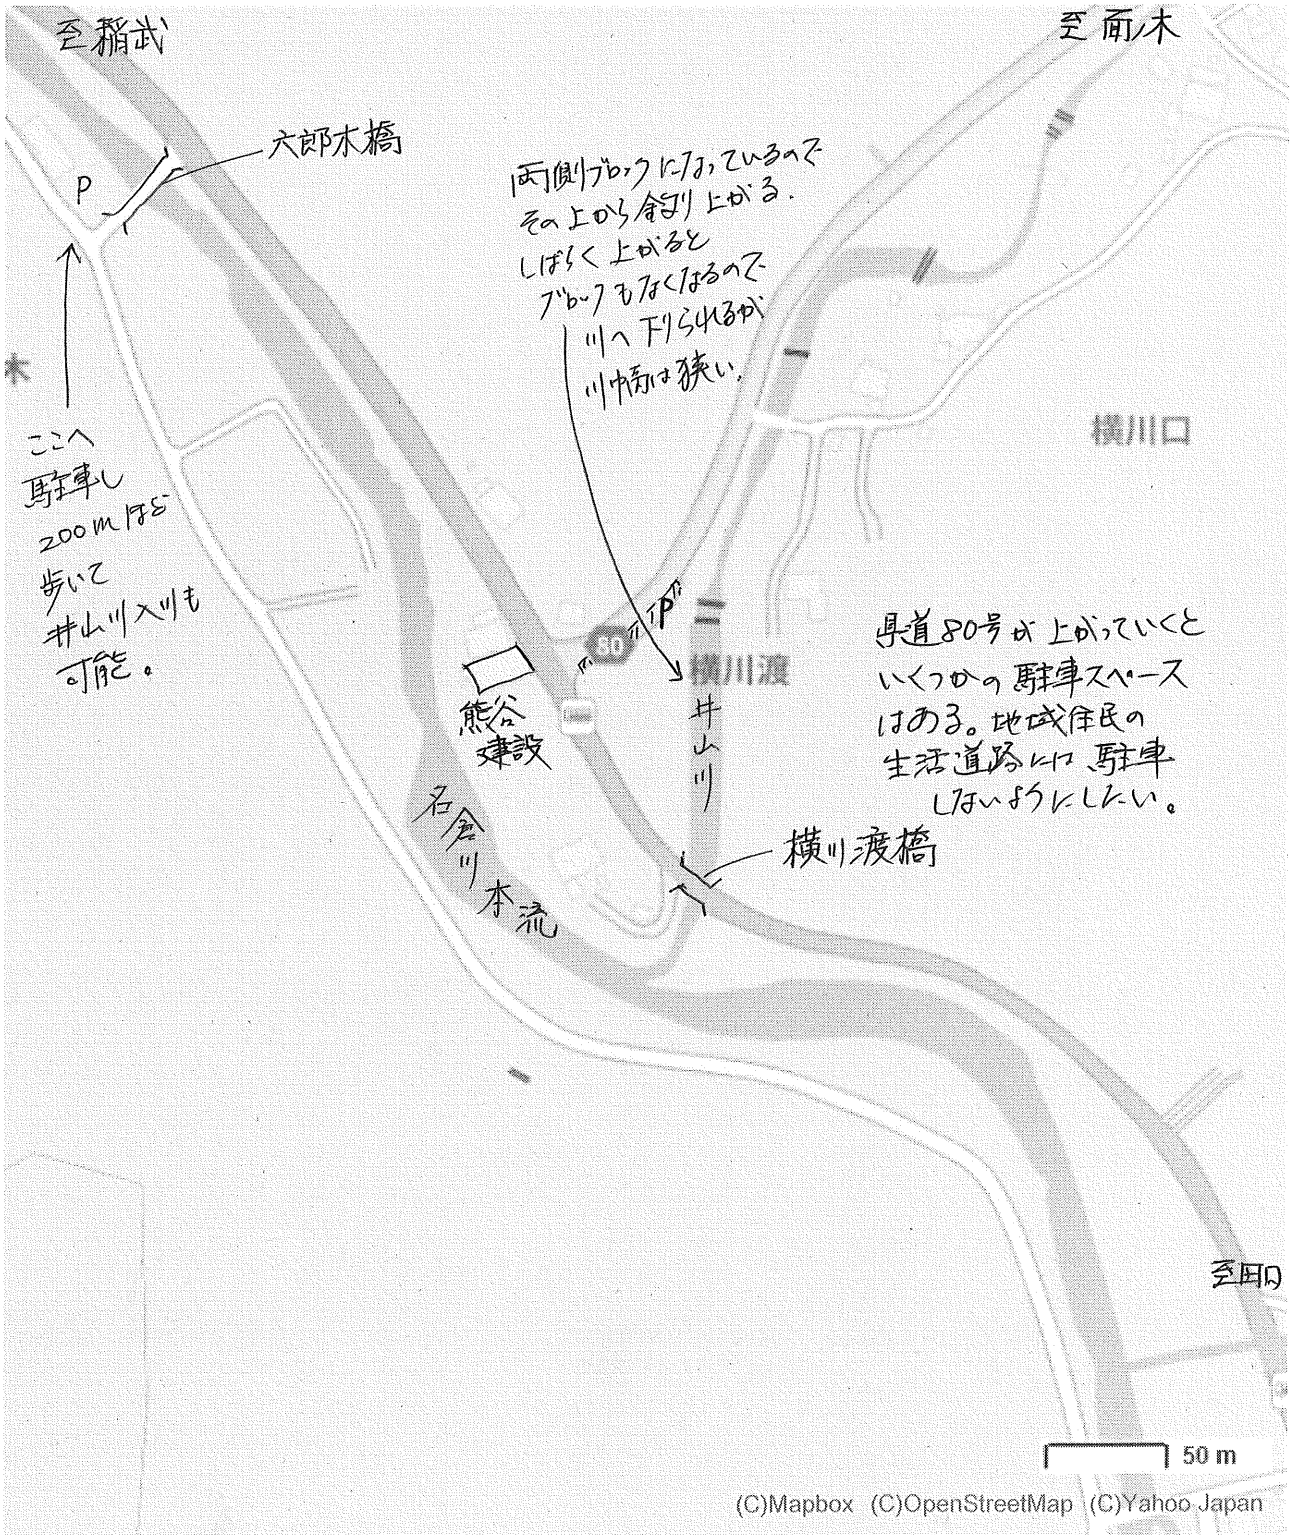 至稲武
至面ノ木
六郎木橋
P
両側ブロックになっているので
その上から釣り上がる.
しばらく上がると
ブロックもなくなるので
川へ下りられるが
川幅は狭い.
木
横川口
ここへ
駐車し
200mほど
歩いて
井山川入川も
可能。
P
80
横川渡
熊谷
建設
井山川
県道80号が上がっていくと
いくつかの駐車スペース
はある。地域住民の
生活道路には駐車
しないようにしたい。
名倉川本流
横川渡橋
至田口
50 m
(C)Mapbox (C)OpenStreetMap (C)Yahoo Japan